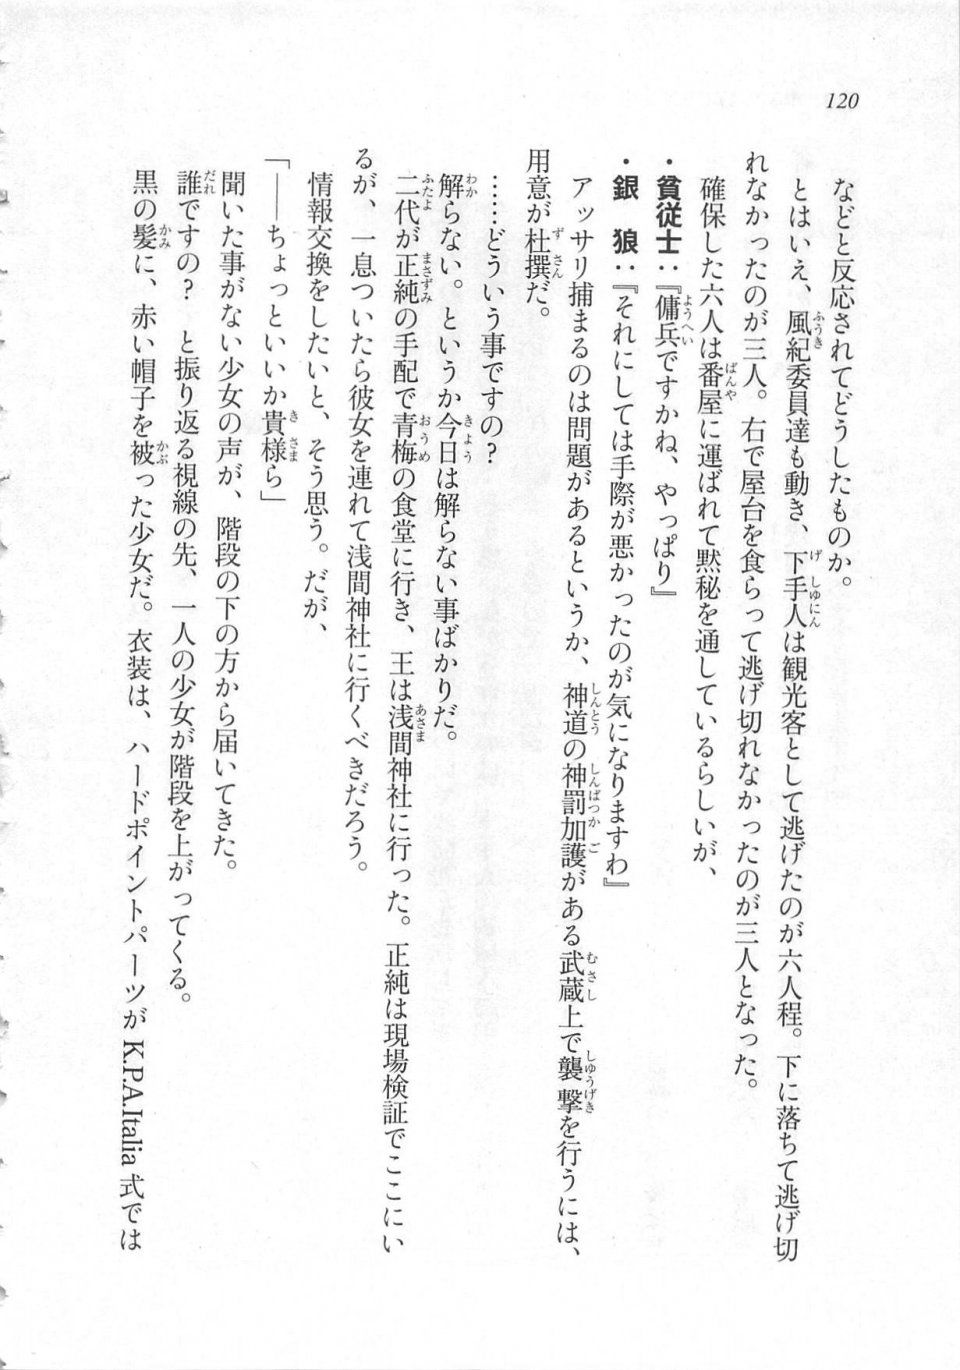 120
などと反応されてどうしたものか。
とはいえ、風紀委員達も動き、下手人は観光客として逃げたのが六人程。下に落ちて逃げ切
れなかったのが三人。右で屋台を食らって逃げ切れなかったのが三人となった。
確保した六人は番屋に運ばれて黙秘を通しているらしいが、
・貧従士：『傭兵ですかね、やっぱり』
・銀　狼：『それにしては手際が悪かったのが気になりますわ』
アッサリ捕まるのは問題があるというか、神道の神罰加護がある武蔵上で襲撃を行うには、
用意が杜撰だ。
……どういう事ですの？
解らない。というか今日は解らない事ばかりだ。
二代が正純の手配で青梅の食堂に行き、王は浅間神社に行った。正純は現場検証でここにい
るが、一息ついたら彼女を連れて浅間神社に行くべきだろう。
情報交換をしたいと、そう思う。だが、
「——ちょっといいか貴様ら」
聞いた事がない少女の声が、階段の下の方から届いてきた。
誰ですの？　と振り返る視線の先、一人の少女が階段を上がってくる。
黒の髪に、赤い帽子を被った少女だ。衣装は、ハードポイントパーツが K.P.A.Italia 式では